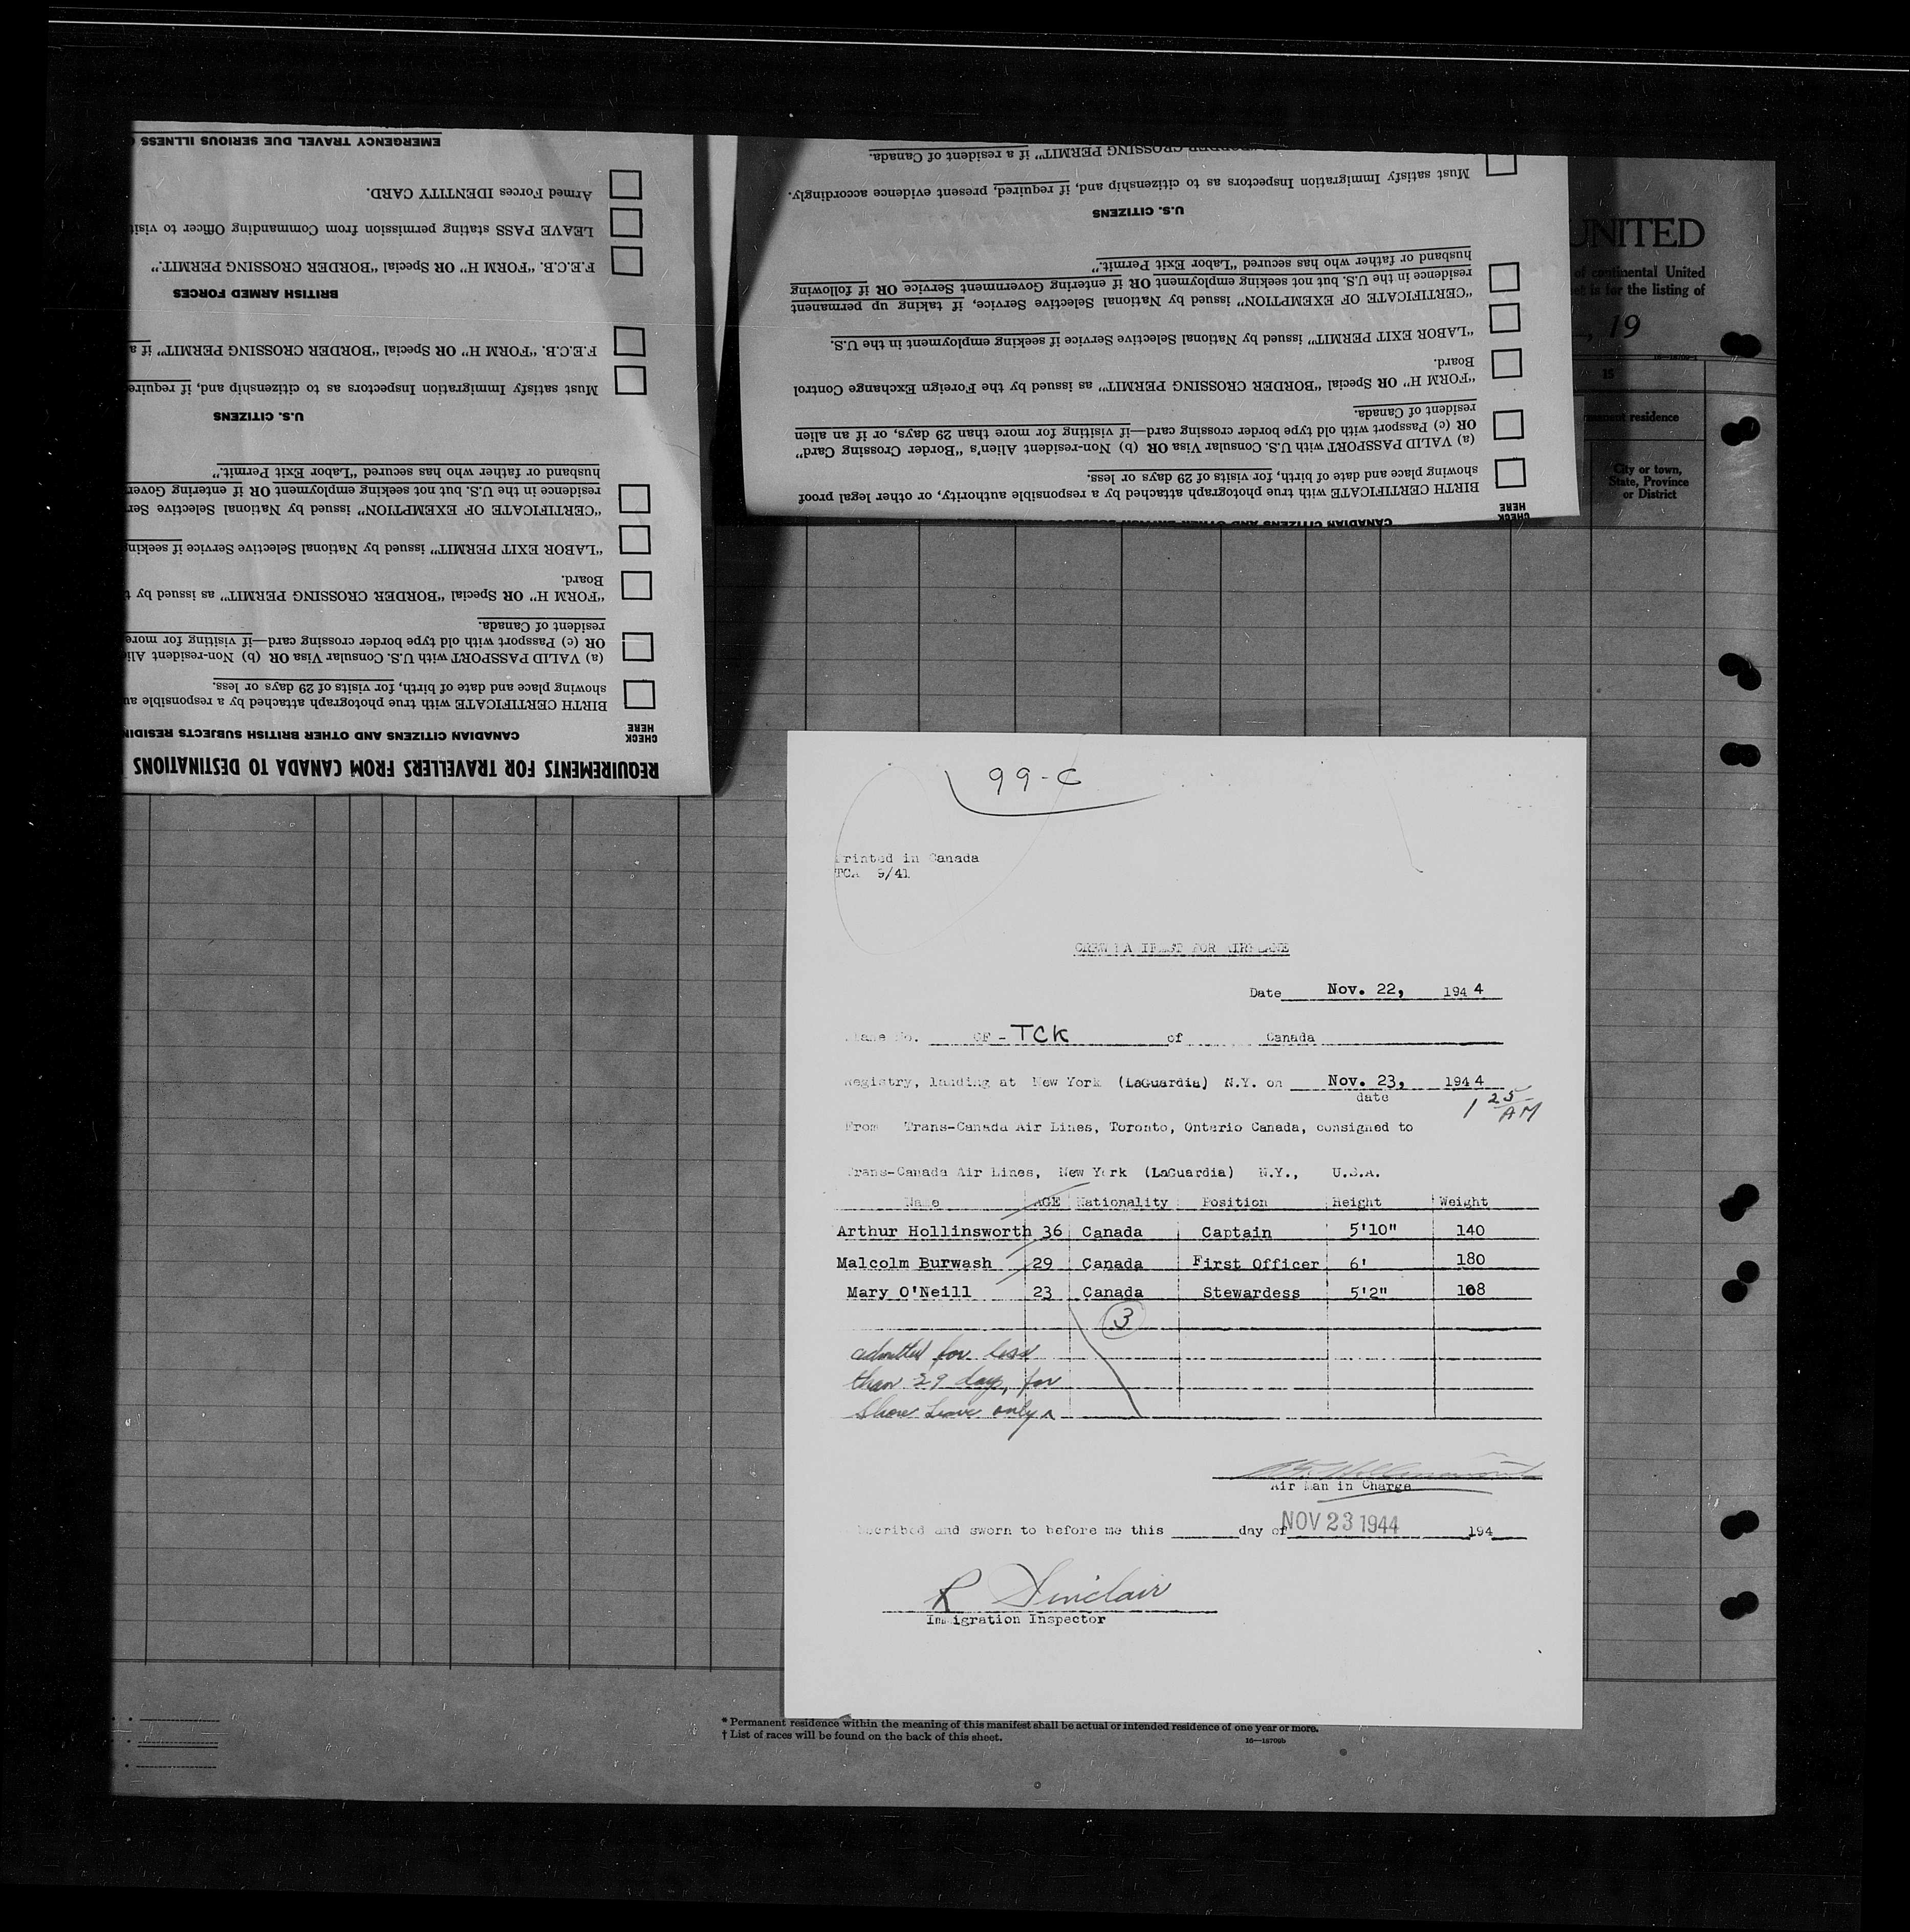 EMERGENCY TRAVEL DUE SERIOUS ILLNESS
Armed Forces IDENTITY CARD.
LEAVE PASS stating permission from Commanding Officer to visit
F.E.C.B. "FORM H" OR Special "BORDER CROSSING PERMIT."
BRITISH ARMED FORCES
F.E.C.B. "FORM H" OR Special "BORDER CROSSING PERMIT" if a
Must satisfy Immigration Inspectors as to citizenship and, if require
U.S. CITIZENS
husband or father who has secured "Labor Exit Permit."
residence in the U.S. but not seeking employment OR if entering Gover
"CERTIFICATE OF EXEMPTION" issued by National Selective Ser
"LABOR EXIT PERMIT" issued by National Selective Service if seeking
Board.
"FORM H" OR Special "BORDER CROSSING PERMIT" as issued by t
resident of Canada.
OR (c) Passport with old type border crossing card—if visiting for more
(a) VALID PASSPORT with U.S. Consular Visa OR (b) Non-resident Alie
showing place and date of birth, for visits of 29 days or less.
BIRTH CERTIFICATE with true photograph attached by a responsible au
CHECK
HERE
CANADIAN CITIZENS AND OTHER BRITISH SUBJECTS RESIDIN
REQUIREMENTS FOR TRAVELLERS FROM CANADA TO DESTINATIONS
CROSSING PERMIT" if a resident of Canada.
Must satisfy Immigration Inspectors as to citizenship and, if required, present evidence accordingly.
U.S. CITIZENS
husband or father who has secured "Labor Exit Permit."
residence in the U.S. but not seeking employment OR if entering Government Service OR if following
"CERTIFICATE OF EXEMPTION" issued by National Selective Service, if taking up permanent
"LABOR EXIT PERMIT" issued by National Selective Service if seeking employment in the U.S.
Board.
"FORM H" OR Special "BORDER CROSSING PERMIT" as issued by the Foreign Exchange Control
resident of Canada.
OR (c) Passport with old type border crossing card—if visiting for more than 29 days, or if an alien
(a) VALID PASSPORT with U.S. Consular Visa OR (b) Non-resident Alien's "Border Crossing Card"
showing place and date of birth, for visits of 29 days or less.
BIRTH CERTIFICATE with true photograph attached by a responsible authority, or other legal proof
CHECK
HERE
CANADIAN CITIZENS AND OTHER BRITISH
UNITED
of continental United
is for the listing of
, 19
15
permanent residence
City or town,
State, Province
or District
99-C
Printed in Canada
TCA 9/41
CREW MANIFEST FOR AIRPLANE
Date Nov. 22, 1944
Plane No. CF-TCK of Canada
Registry, landing at New York (LaGuardia) N.Y. on Nov. 23, 1944
date
1 25 AM
From Trans-Canada Air Lines, Toronto, Ontario Canada, consigned to
Trans-Canada Air Lines, New York (LaGuardia) N.Y., U.S.A.
Name AGE Nationality Position Height Weight
Arthur Hollinsworth 36 Canada Captain 5'10" 140
Malcolm Burwash 29 Canada First Officer 6' 180
Mary O'Neill 23 Canada Stewardess 5'2" 108
3
admitted for less
than 29 days, for
Shore Leave only
Air Man in Charge
scribed and sworn to before me this day of NOV 23 1944 194
R Sinclair
Immigration Inspector
* Permanent residence within the meaning of this manifest shall be actual or intended residence of one year or more.
† List of races will be found on the back of this sheet.
16—18709b